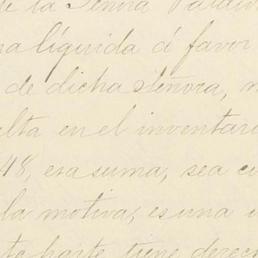 de la Señora
na líquida á favor
de dicha Señora,
elta en el inventar
48, esa suma, sea c
la motiva, es una
ta parte tiene derec